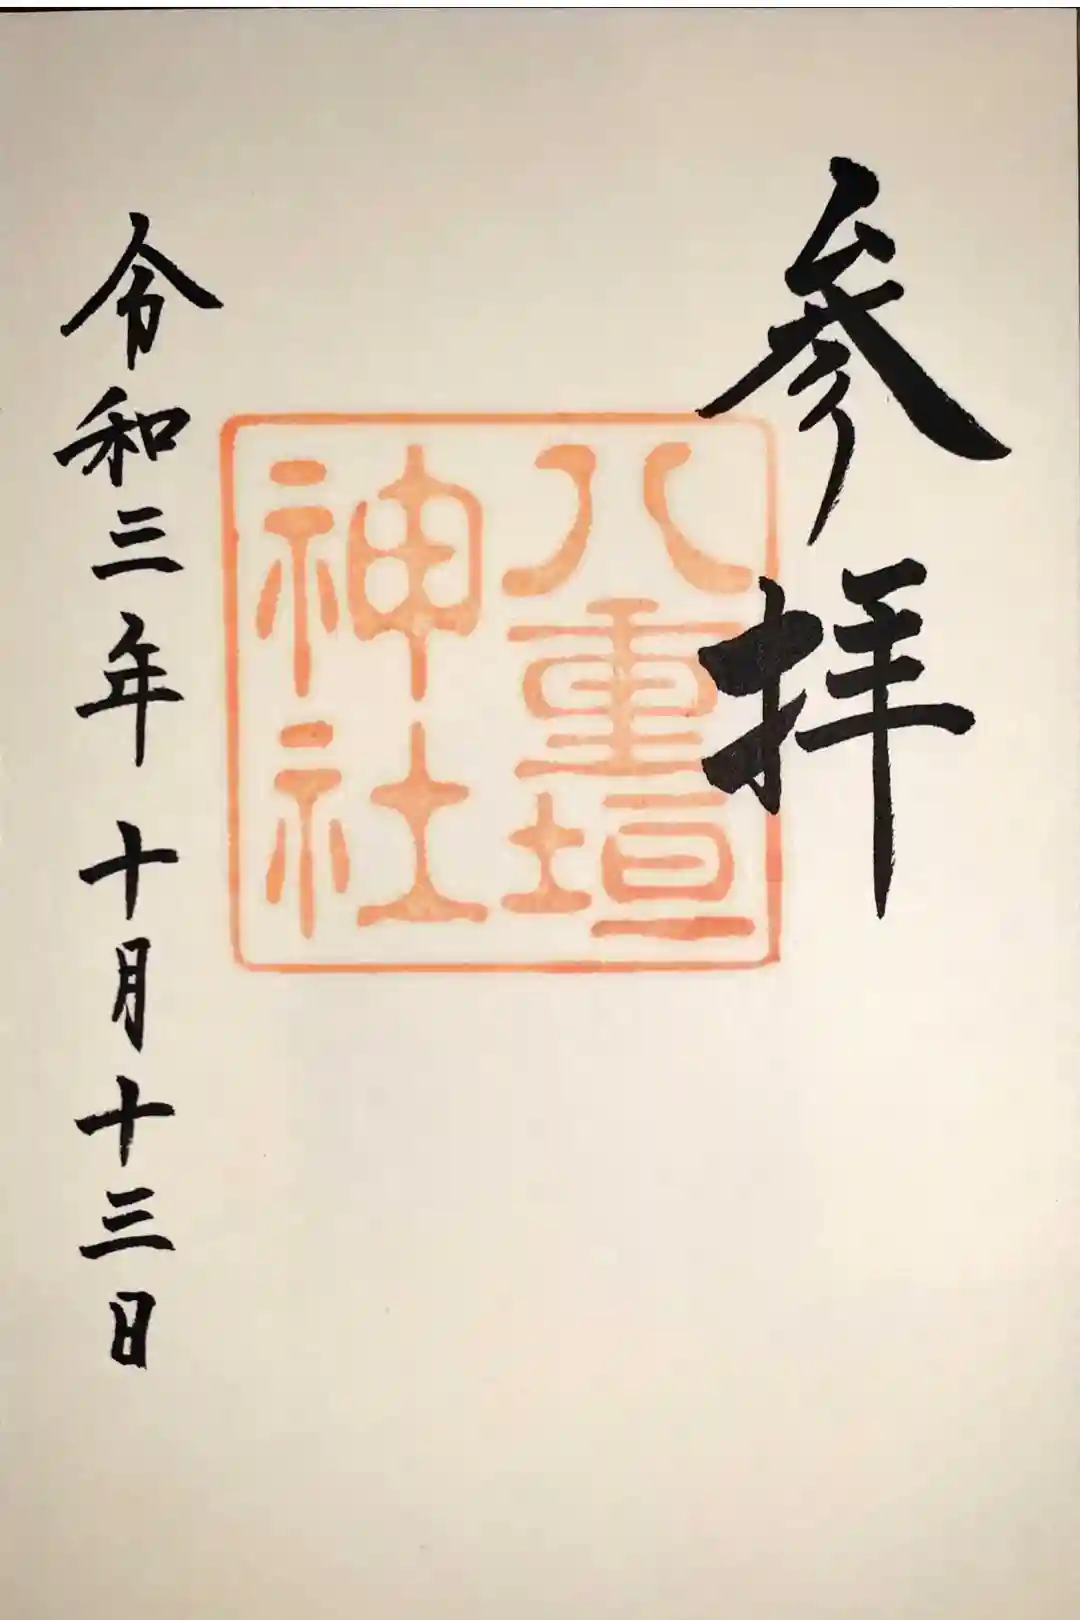 参拝
八重垣
神社
令和三年 十月十三日